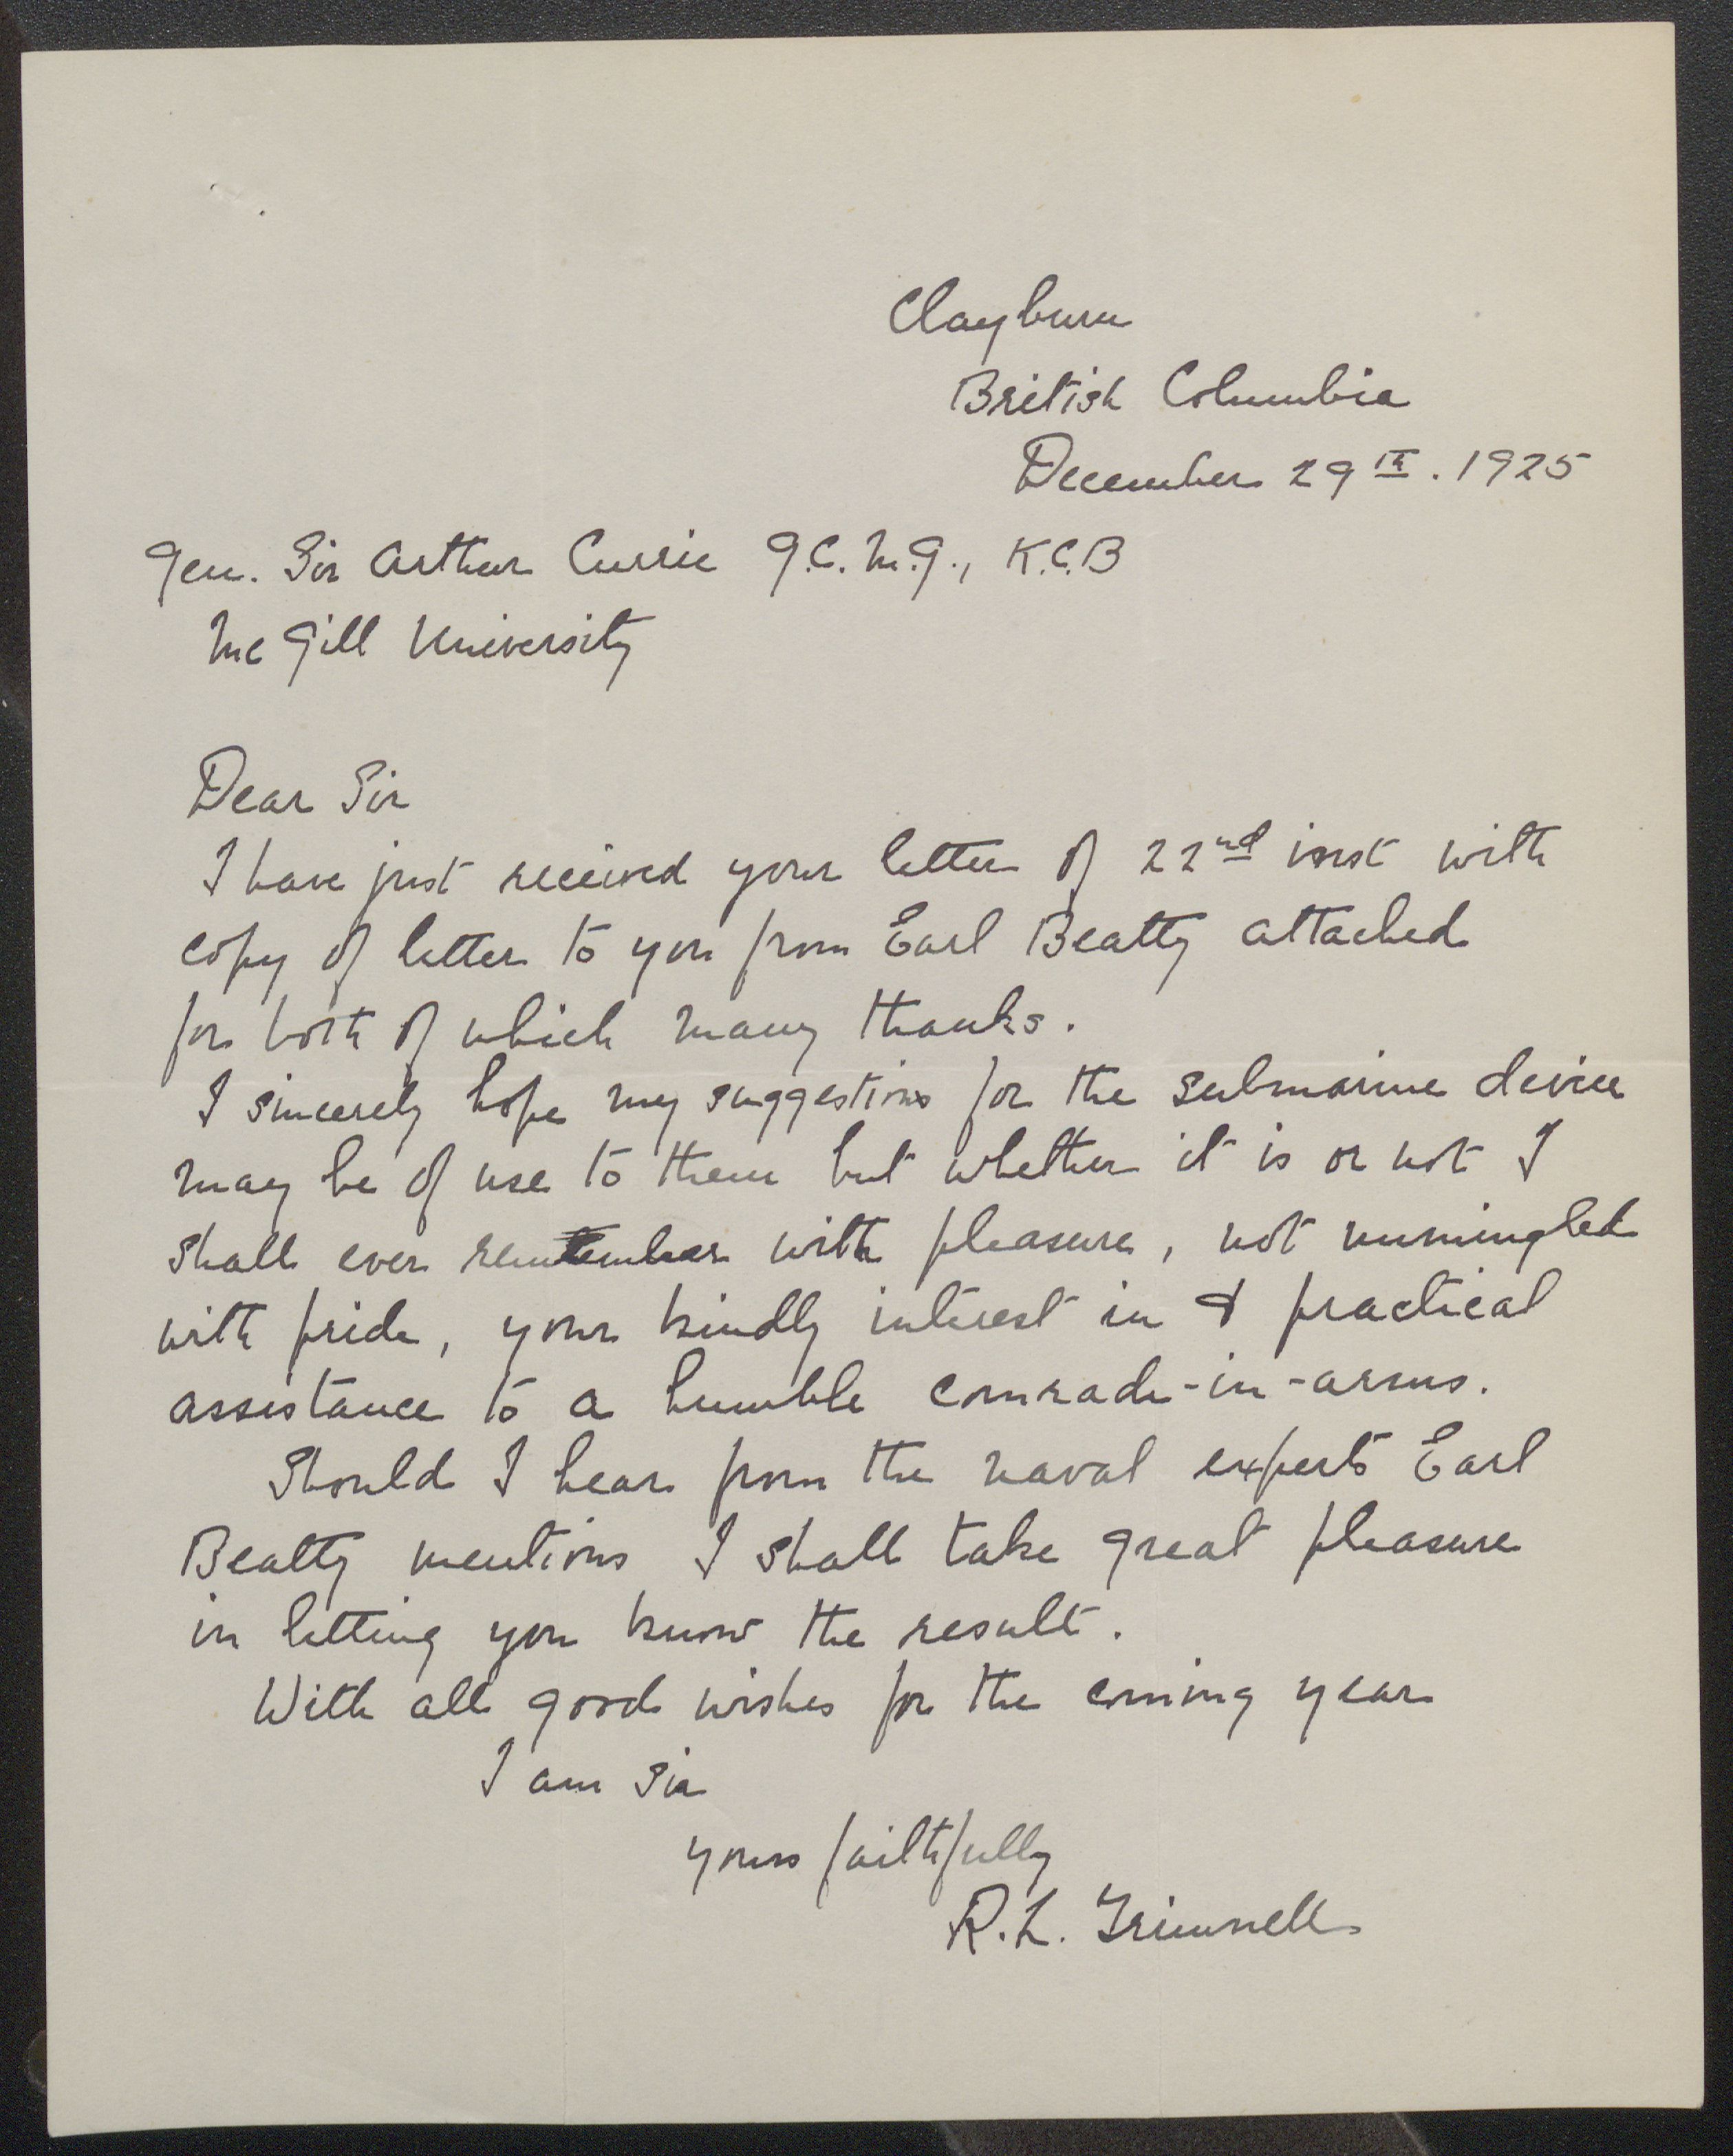 Clayburn
British Columbia
December 29th. 1925
Gen. Sir Arthur Currie G.C.M.G., K.C.B
McGill University
Dear Sir
I have just received your letter of 22nd inst with
copy of letter to you from Earl Beatty attached
for both of which many thanks.
I sincerely hope my suggestions for the submarine device
may be of use to them but whether it is or not I
shall ever remember with pleasure, not unmingled
with pride, your kindly interest in & practical
assistance to a humble comrade-in-arms.
Should I hear from the naval experts Earl
Beatty mentions I shall take great pleasure
in letting you know the result.
With all good wishes for the coming year
I am Sir
yours faithfully
R.L.